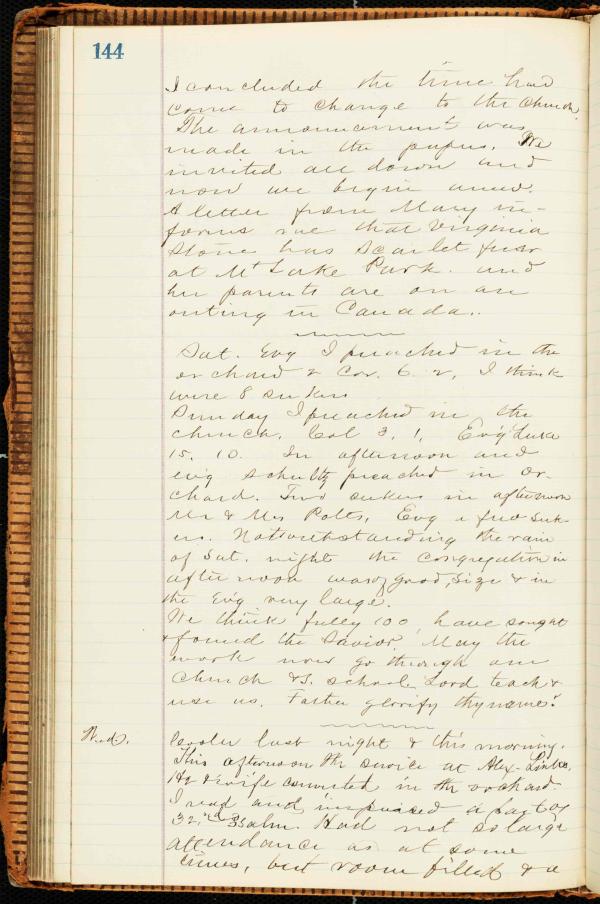 144
I concluded the time had
come to change to the Church.
The announcement was
made in the papers. We
invited all down and
now we begin anew.
A letter from Mary in-
forms me that Virginia
Stone has Scarlet fever
at Mt Lake Park. and
her parents are on an
outing in Canada..
Sat. Evg I preached in the
orchard 2 Cor. 6. 2, I think
were 8 seekers
Sunday I preached in the
church. Col 3, 1, Ev'g Luke
15, 10. In afternoon and
evg Schultz preached in or-
chard. Two seekers in afternoon
Mr & Mrs Potts, Evg a few seek-
ers. Notwithstanding the rain
of Sat. night the congregation in
afternoon was of good, size & in
the Ev'g very large.
We think fully 100 have sought
& found the Savior. May the
work now go through our
Church & S. school. Lord teach &
use us. Father glorify thy name!
Wed.
Cooler last night & this morning.
This afternoon the service at Alex.
He & wife converted in the orchard.
I read and a part of
32,nd Psalm. Had not so large
attendance as at some
times, but room filled & a